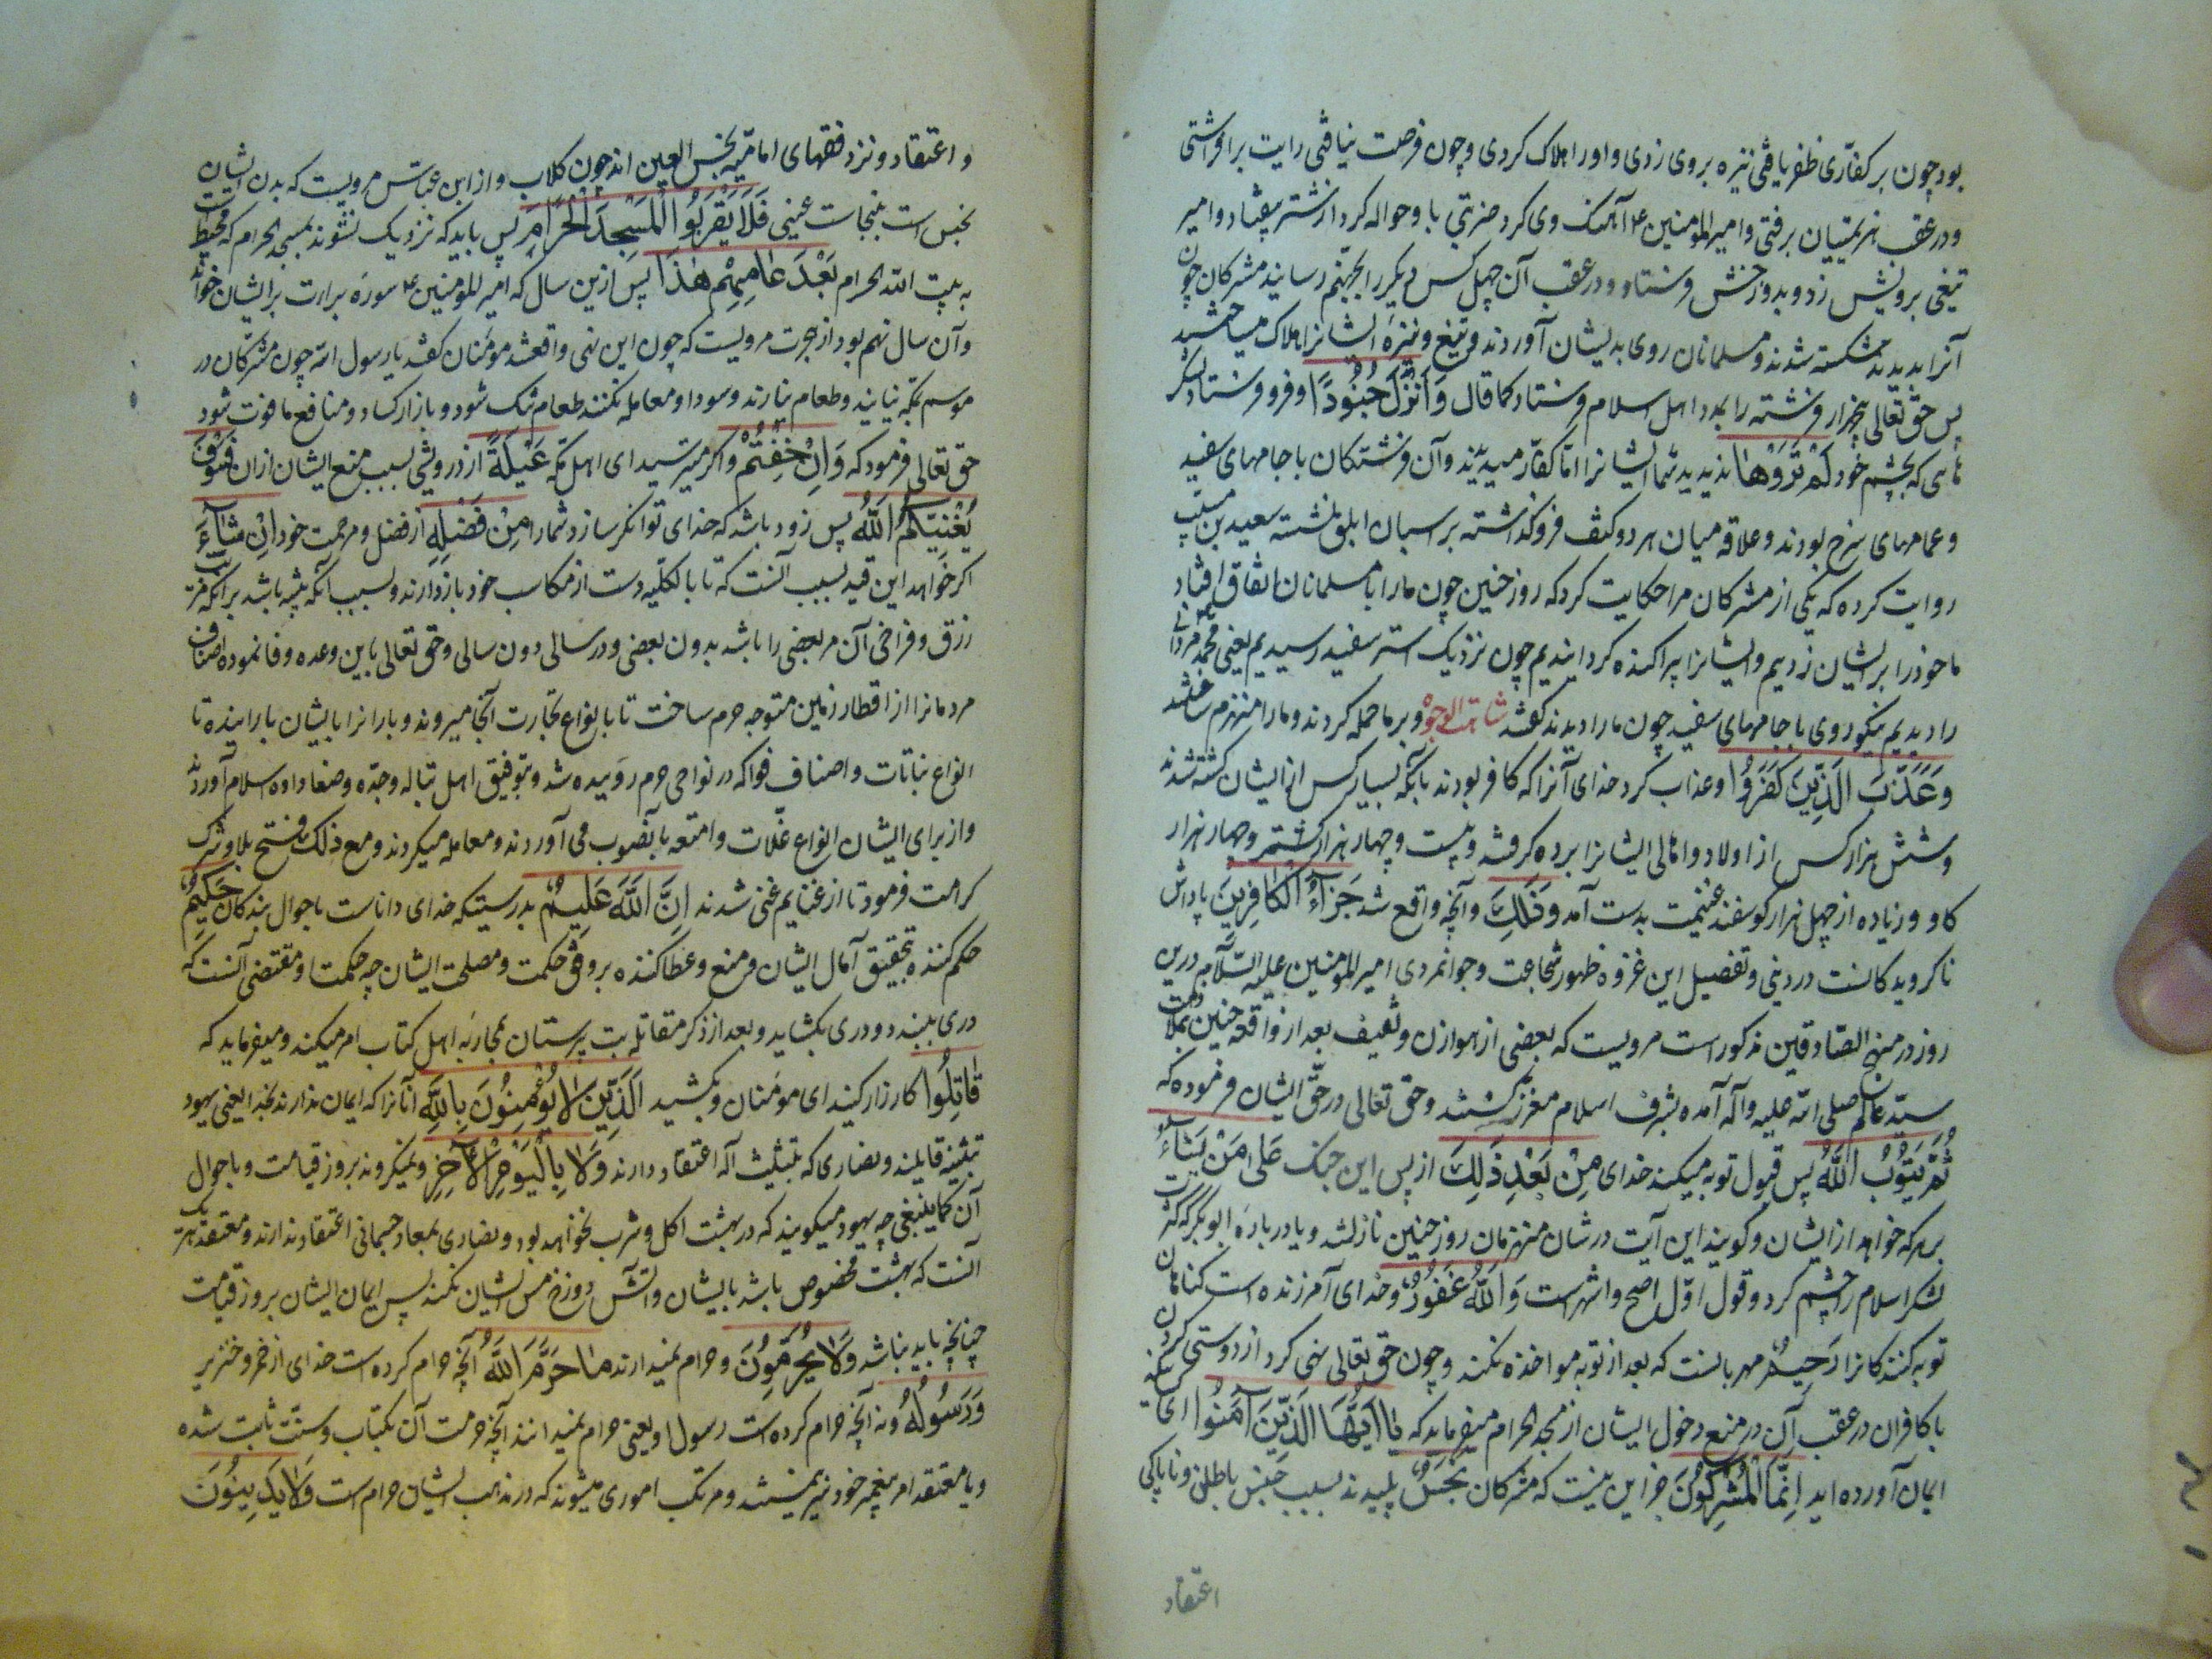 بود چون بر کفاری ظفر یافتی نیزه بروی زدی و اورا هلاک کردی و چون فرصت نیافتی رایت برافراشتی
و در عقب هزیمتیان برفتی و امیر المومنین ع آهنگ وی کرد ضربتی باو حواله کرد از شتر بیفتاد و امیر
تیغی برویش زد و بدوزخش فرستاد و در عقب آن چهل کس دیگر را بجهنم رسانید مشرکان چون
آنرا بدیدند شکسته شدند و مسلمانان روی بدیشان آوردند و بتیغ و نیزه ایشانرا هلاک میساختند
پس حق تعالی پنجهزار فرشته را بمدد اهل اسلام فرستاد کما قال وَاَنْزَلَ جُنُودًا و فرو فرستاد لشکر
هایی که بچشم خود لَمْ تَرَوْهٰا ندیدید شما ایشانرا اما کفار میدیدند و آن فرشتکان با جامهای سفید
و عمامهای سرخ بودند و علاقه میان هر دو کتف فروکذاشته بر اسبان ابلق نشسته سعید بن مسیب
روایت کرده که یکی از مشرکان مرا حکایت کرد که روز حنین چون مارا با مسلمانان اتفاق افتاد
ما خودرا بر ایشان زدیم و ایشانرا پراکنده کردانیدیم چون نزدیک استر سفید رسیدیم یعنی محمد مردانی
را دیدیم نیکوروی با جامهای سفید چون مارا دیدند کفتند شاهت الوجوه و بر ما حمله کردند و مارا منهزم ساختند
وَعَذَّبَ الَّذِینَ کَفَرُوا و عذاب کرد خدای آنرا که کافر بودند بآنکه بسیار کس از ایشان کشته شدند
و شش هزار کس از اولاد و اهالی ایشانرا برده کرفتند و بیست و چهار هزار شتر و چهار هزار
کاو و زیاده از چهل هزار کوسفند غنیمت بدست آمد وَذٰلِکَ و آنچه واقع شد جَزٰاءُ الْکٰافِرِینَ پاداش
ناکرویدکانست در دنیی و تفصیل این غزوه ظهور شجاعت و جوانمردی امیر المومنین علیه السلام درین
روز در منهج الصادقین مذکور است مرویست که بعضی از هوازن و ثقیف بعد از واقعه حنین بملازمت
سید عالم صلی الله علیه و آله آمده بشرف اسلام معزز کشتند و حق تعالی در حق ایشان فرموده که
ثُمَّ یَتُوبُ اللّٰهُ پس قبول توبه میکند خدای مِنْ بَعْدِ ذٰلِکَ از پس این جنک عَلٰی مَنْ یَشٰاءُ
بر هرکه خواهد از ایشان و کویند این آیت در شان منهزمان روز حنین نازلشد و یا درباره ابوبکر که کثرت
لشکر اسلام را چشم کرد و قول اول اصح و اشهر است وَاللّٰهُ غَفُورٌ و خدای آمرزنده است کناهان
توبه کنندکانرا رَحِیمٌ مهربانست که بعد از توبه مواخذه نکند و چون حق تعالی نهی کرد از دوستی کردن
با کافران در عقب آن در منع دخول ایشان از مسجد الحرام میفرماید که یٰا اَیُّهَا الَّذِینَ اٰمَنُوا ای کسانیکه
ایمان آورده اید اِنَّمَا الْمُشْرِکُونَ جز این نیست که مشرکان نَجَسٌ پلیدند بسبب خبث باطن و ناپاکی
اعتقاد
و اعتقاد و نزد فقهای امامیه نجس العین اند چون کلاب و از ابن عباس مرویست که بدن ایشان
نجس است بنجاست عینی فَلٰا یَقْرَبُوا الْمَسْجِدَ الْحَرٰامَ پس باید که نزدیک نشوند بمسجد الحرام که محیط است
به بیت الله الحرام بَعْدَ عٰامِهِمْ هٰذَا پس ازین سال که امیر المومنین ع سوره براءت بر ایشان خواند
و آن سال نهم بود از هجرت مرویست که چون این نهی واقعشد مومنان کفتند یا رسول الله چون مشرکان در
موسم بمکه نیایند و طعام نیارند و سودا و معامله نکنند طعام تنک شود و بازار کساد و منافع ما فوت شود
حق تعالی فرمود که وَاِنْ خِفْتُمْ و اکر میترسید ای اهل مکه عَیْلَةً از درویشی بسبب منع ایشان ازان فَسَوْفَ
یُغْنِیکُمُ اللّٰهُ پس زود باشد که خدای توانکر سازد شمارا مِنْ فَضْلِهِ از فضل و مرحمت خود اِنْ شٰاءَ
اکر خواهد این قید بسبب آنست که تا بالکلیه دست از مکاسب خود بازندارند و بسبب آنکه تنبیه باشد برآنکه مرتب
رزق و فراخی آن مر بعضی را باشد بدون بعضی و در سالی دون سالی و حق تعالی باین وعده وفا نموده اصناف
مردمانرا از اقطار زمین متوجه حرم ساخت تا بانواع تجارت آنجا میروند و بارانرا بایشان بارانیده تا
انواع نباتات و اصناف فواکه در نواحی حرم روییده شد و بتوفیق اهل تباله و جده و صنعا داده اسلام آوردند
و از برای ایشان انواع غلات و امتعه بانصوب می آوردند و معامله میکردند و مع ذلک فتح بلاد شرک
کرامت فرمود تا از غنایم غنی شدند اِنَّ اللّٰهَ عَلِیمٌ بدرستیکه خدای داناست باحوال بندکان حَکِیمٌ
حکم کننده بتحقیق آمال ایشان و منع و عطا کننده بر وفق حکمت و مصلحت ایشان چه حکمت او مقتضی آنست که
دری ببندد و دری بکشاید و بعد از ذکر مقاتله بت پرستان بمحاربه اهل کتاب امر میکند و میفرماید که
قٰاتِلُوا کارزار کنید ای مومنان و بکشید الَّذِینَ لٰا یُؤْمِنُونَ بِاللّٰهِ آنانرا که ایمان ندارند بخدا یعنی یهود
بتثنیه قایلند و نصاری که بتثلیث اله اعتقاد دارند وَلٰا بِالْیَوْمِ الْاٰخِرِ و نمیکروند بروز قیامت و باحوال
آن کما ینبغی چه یهود میکویند که در بهشت اکل و شرب نخواهد بود و نصاری بمعاد جسمانی اعتقاد ندارند و معتقد هر یک
آنست که بهشت مخصوص باشد بایشان و آتش دوزخ مس ایشان نکند پس ایمان ایشان بروز قیامت
چنانچه باید نباشد وَلٰا یُحَرِّمُونَ و حرام نمیدارند مٰا حَرَّمَ اللّٰهُ آنچه حرام کرده است خدای از خمر و خنزیر
وَرَسُولُهُ و نه آنچه حرام کرده است رسول او یعنی حرام نمیدانند آنچه حرمت آن بکتاب و سنت ثابت شده
و یا معتقد امر پیغمبر خود نیز نیستند و مرتکب اموری میشوند که در مذهب ایشان حرام است وَلٰا یَدِینُونَ